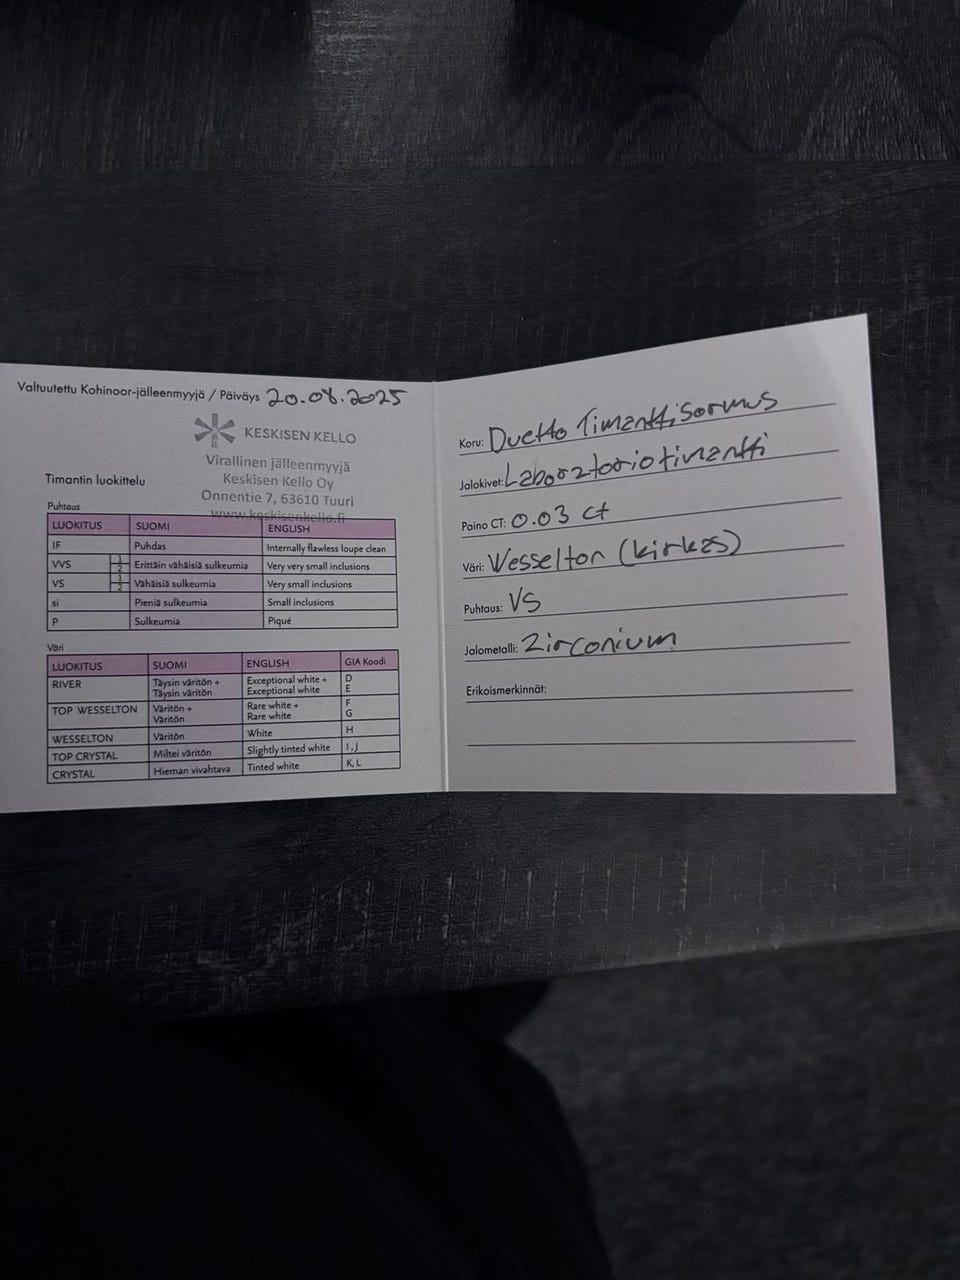 Valtuutettu Kohinoor-jälleenmyyjä / Päiväys 20.08.2025
KESKISEN KELLO
Virallinen jälleenmyyjä
Keskisen Kello Oy
Onnentie 7, 63610 Tuuri
www.keskisenkello.fi
Timantin luokittelu
Puhtaus
LUOKITUS SUOMI ENGLISH
IF Puhdas Internally flawless loupe clean
VVS 1 2 Erittäin vähäisiä sulkeumia Very very small inclusions
VS 1 2 Vähäisiä sulkeumia Very small inclusions
si Pieniä sulkeumia Small inclusions
P Sulkeumia Piqué
Väri
LUOKITUS SUOMI ENGLISH GIA Koodi
RIVER Täysin väritön + Exceptional white + D
Täysin väritön Exceptional white E
TOP WESSELTON Väritön + Rare white + F
Väritön Rare white G
WESSELTON Väritön White H
TOP CRYSTAL Miltei väritön Slightly tinted white I,J
CRYSTAL Hieman vivahtava Tinted white K,L
Koru: Duetto Timanttisormus
Jalokivet: Laboratoriotimantti
Paino CT: 0.03 ct
Väri: Wesselton (kirkas)
Puhtaus: VS
Jalometalli: Zirconium
Erikoismerkinnät: